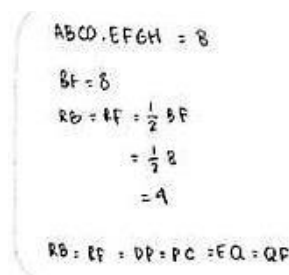 ABCD.EFGH = 8
BF = 8
RB = RF = 1/2 BF
= 1/2 8
= 4
RB = RF = DP = PC = EQ = QF